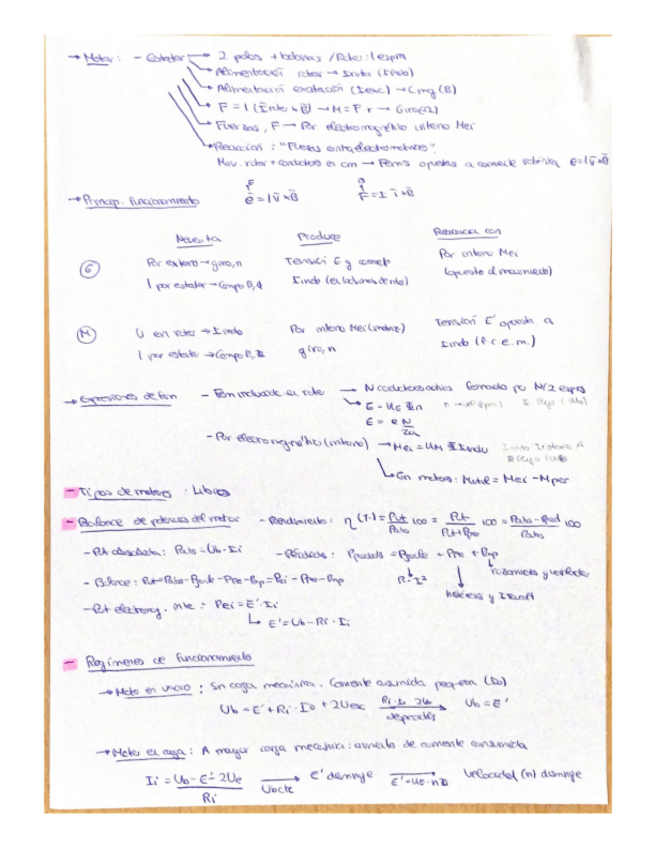 → Motor: - Estator → 2 polos + bobinas / Rotor: 1 espira
→ Alimentación rotor → Irotor (Iindo)
→ Alimentación excitación (Iexc) → Cmg (B)
→ F = l (Iindo x B) → M = F · r → Giro (Ω)
→ Fuerzas, F → Par electromagnético interno Mei
→ Reacción: "Fuerzas contraelectromotrices"
Mov. rotor + conductores en cm → Fems opuestas a corriente e = l v̄ x B̄
→ Princip. funcionamiento ē = l v̄ x B̄ F = I l̄ x B̄
Necesita Produce Reacciona con
G Par externo → giro, n Tensión E y corriente Par interno Mei
I por estator → Campo B, Φ Iindo (en bobinas de rotor) (opuesto al movimiento)
M U en rotor → Iindo Par interno Mei (motriz) Tensión E' opuesta a
I por estator → Campo B, Φ giro, n Iindo (f.c.e.m.)
→ Expresiones de fem - Fem inducida en rotor → N conductores activos formado por N/2 espiras
E = UE Φ n
E =
- Par electromagnético (interno) → Mei = UM Φ Iindu
En motores: Mútil = Mei - Mper
- Tipos de motores: Libros
- Balance de potencias del motor - Rendimiento: η (%) = Put/Pabs 100 = Put/Put+Ppe 100 = Pabs-Pperd/Pabs 100
- Pot absorbida: Pabs = Ub · Ii - Pérdidas: Pperdidas = Pjoule + PFe + Pmp
R · I² rozamientos y ventilador
- Balance: Put = Pabs - Pjoule - PFe - Pmp = Pei - PFe - Pmp histéresis y
- Pot electromag. inte: Pei = E' · Ii
E' = Ub - Ri · Ii
- Regímenes de funcionamiento
→ Motor en vacío: Sin carga mecánica. Corriente consumida pequeña (Io)
Ub = E' + Ri · Io + 2Uesc Ri · Io 2Ue despreciables Ub = E'
→ Motor en carga: A mayor carga mecánica: aumento de corriente consumida
Ii = Ub - E' - 2Ue / Ri Ub cte E' disminuye E' = UE · n Φ Velocidad (n) disminuye